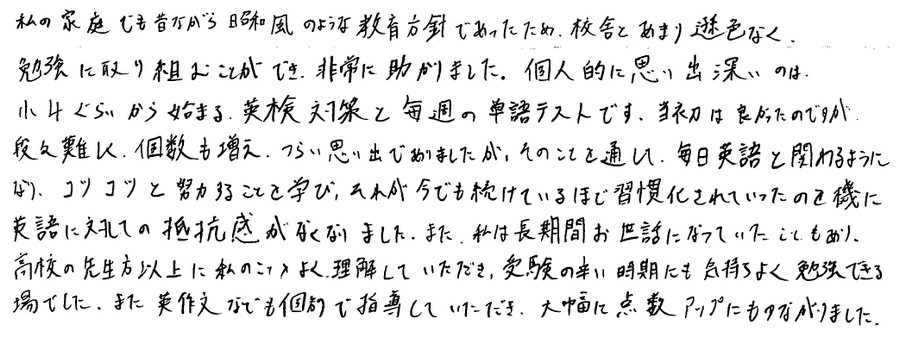 私の家庭でも昔ながら昭和風のような教育方針であったため、校舎とあまり遜色なく、
勉強に取り組むことができ、非常に助かりました。個人的に思い出深いのは、
小4ぐらいから始まる、英検対策と毎週の単語テストです。当初は良かったのですが
段々難しく、個数も増え、つらい思い出でありましたが、そのことを通して、毎日英語と関わるように
なり、コツコツと努力することを学び、それが今でも続けているほど習慣化されていったのを機に
英語に対しての抵抗感がなくなりました。また、私は長期間お世話になっていたこともあり、
高校の先生方以上に私のことをよく理解していただき、受験の辛い時期にも気持ちよく勉強できる
場でした。また英作文なども個別で指導していただき、大幅に点数アップにもつながりました。